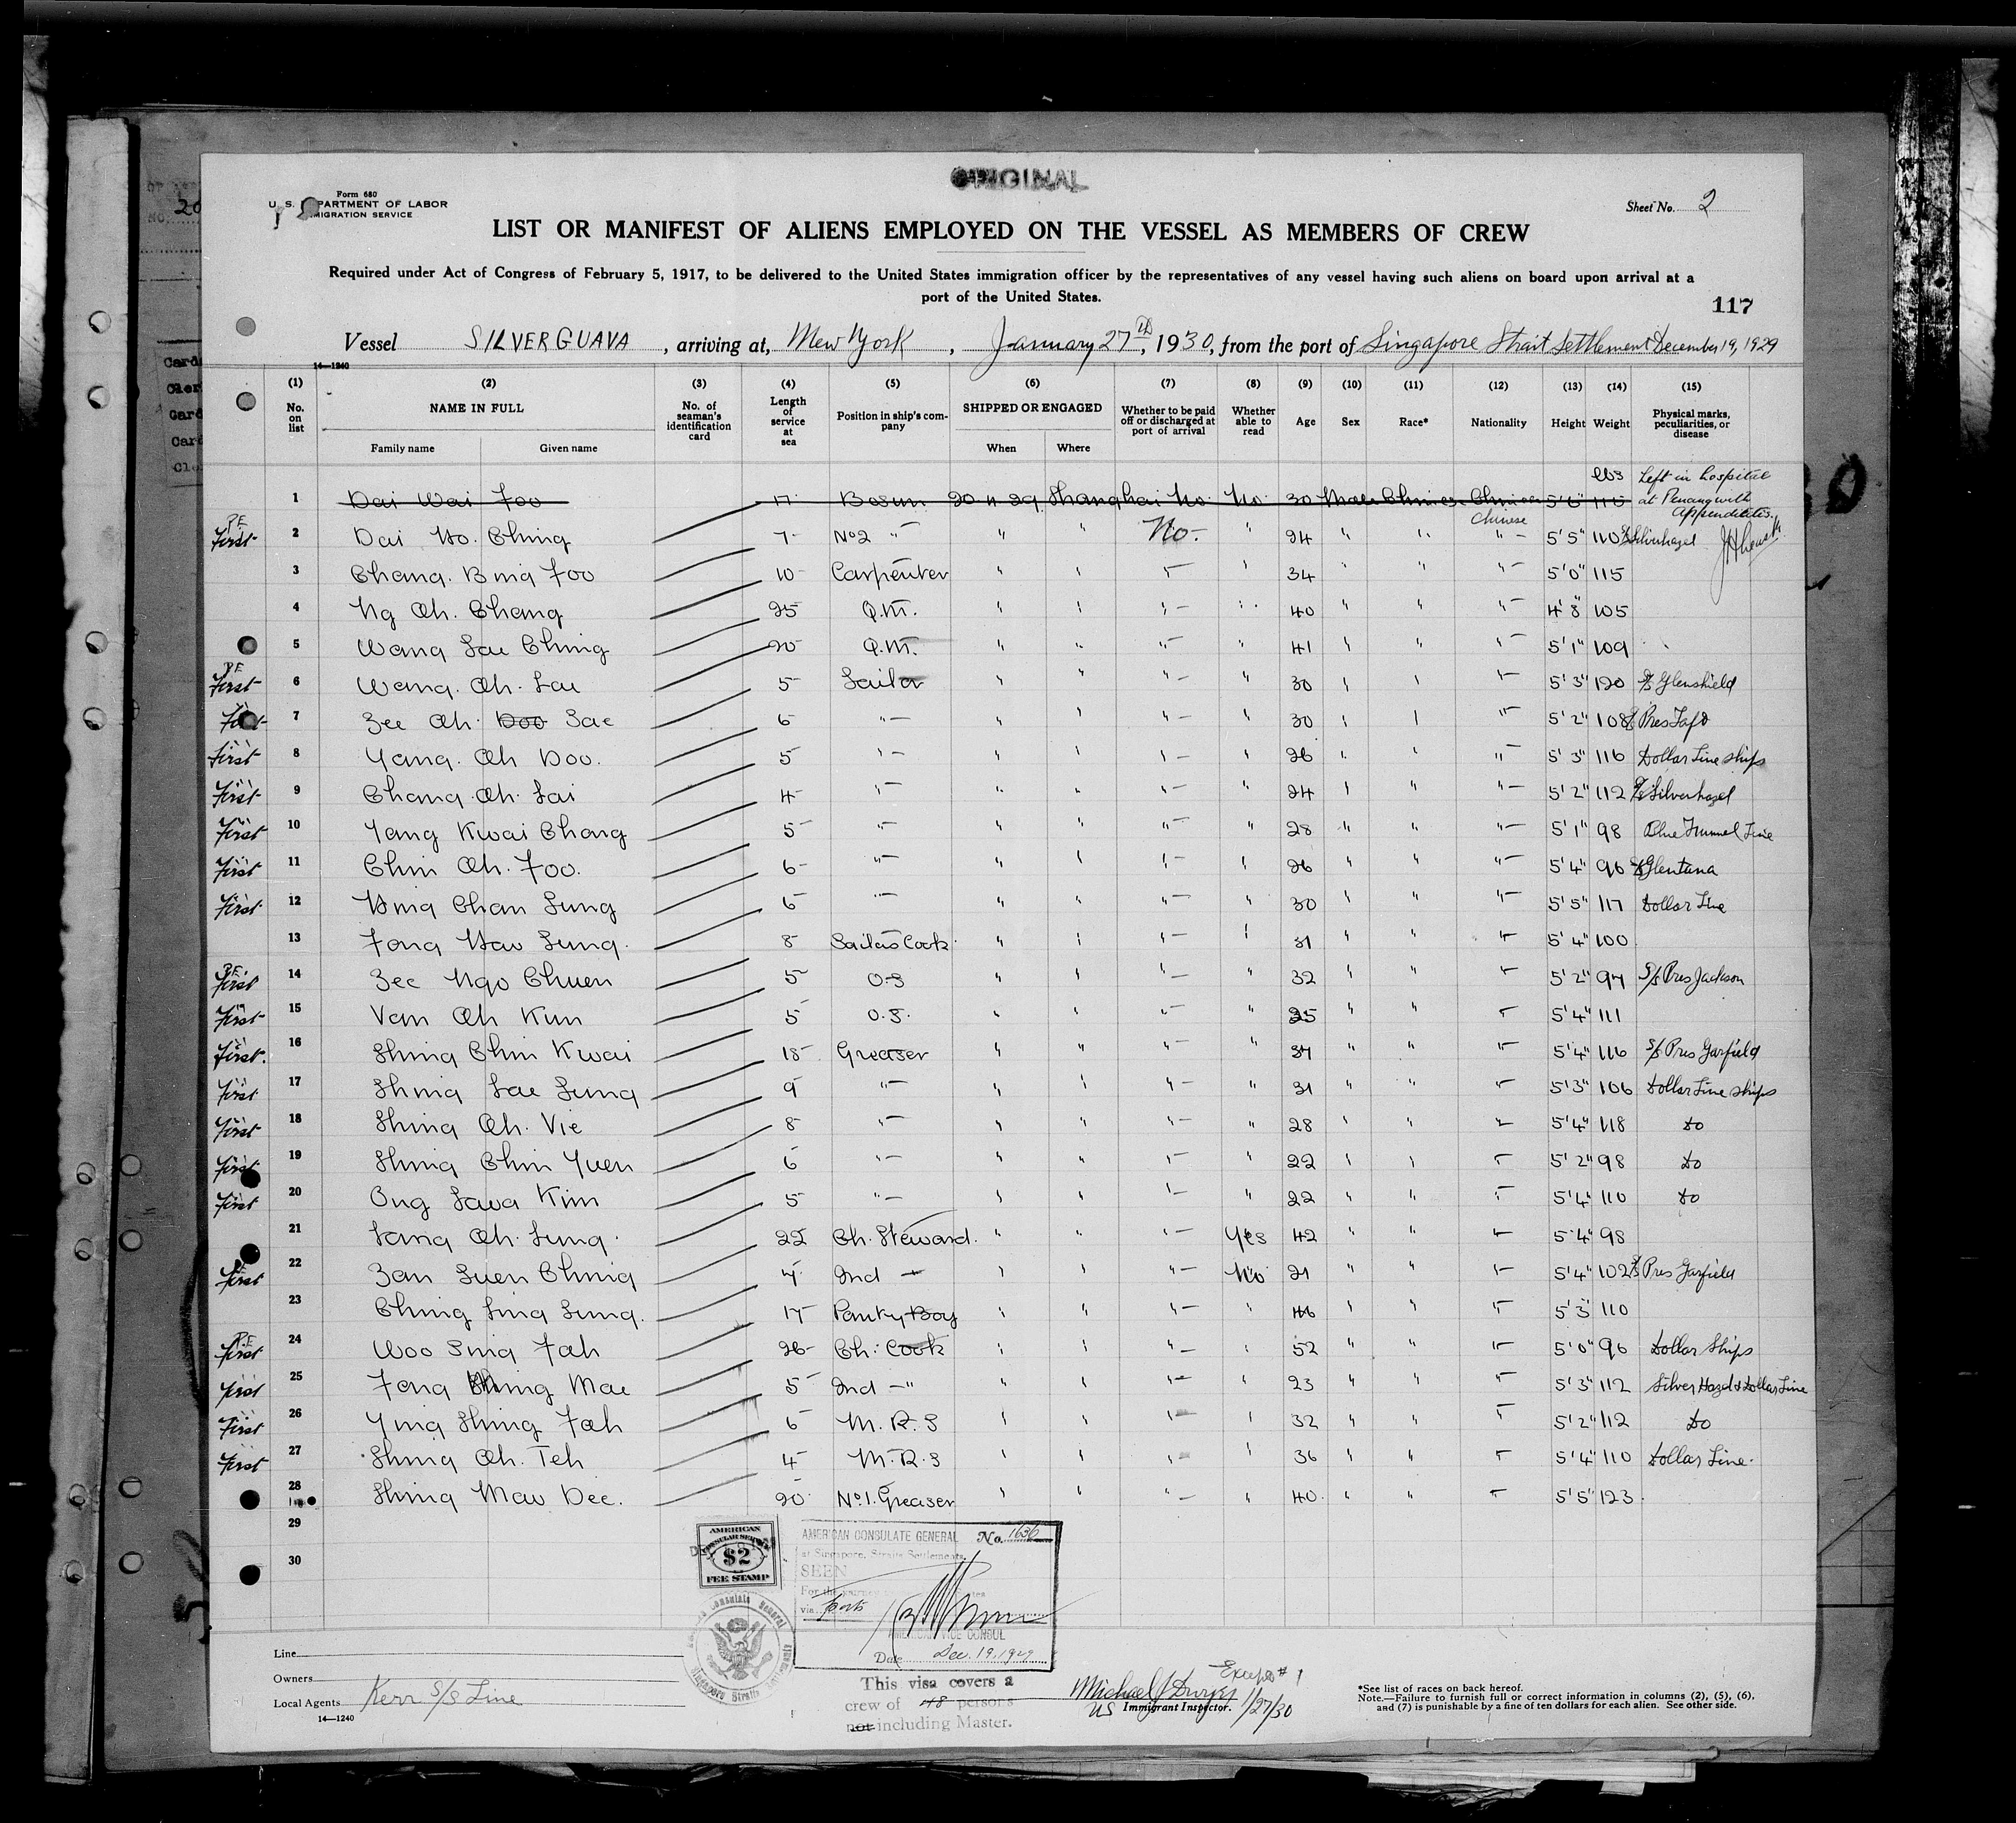 ORIGINAL
Form 680
U. S. DEPARTMENT OF LABOR
IMMIGRATION SERVICE
Sheet No. 2
LIST OR MANIFEST OF ALIENS EMPLOYED ON THE VESSEL AS MEMBERS OF CREW
Required under Act of Congress of February 5, 1917, to be delivered to the United States immigration officer by the representatives of any vessel having such aliens on board upon arrival at a
port of the United States.
117
Vessel SILVERGUAVA, arriving at, New York, January 27th, 1930, from the port of Singapore Strait Settlement December 19, 1929
14—1240
(1) (2) (3) (4) (5) (6) (7) (8) (9) (10) (11) (12) (13) (14) (15)
No. on list NAME IN FULL Family name Given name No. of seaman's identification card Length of service at sea Position in ship's company SHIPPED OR ENGAGED When Where Whether to be paid off or discharged at port of arrival Whether able to read Age Sex Race* Nationality Height Weight Physical marks, peculiarities, or disease
1 Dai Wai Foo 17 Bosun. 20 11 29 Shanghai No. No. 30 Male Chinese Chinese 5'6" 110 lbs Left in hospital at Penang with appendicitis.
P.F. First 2 Dai Ho. Ching 7 No2 " " " No. " 24 " " Chinese " 5'5" 110 S/S Silverhazel
3 Chang. Bing Foo 10 Carpenter " " " " 34 " " " 5'0" 115
4 Ng Ah. Chang 25 Q.M. " " " " 40 " " " 4'8" 105
5 Wang Lae Ching 20 Q.M. " " " " 41 " " " 5'1" 109
P.F. First 6 Wang. Ah. Lae 5 Sailor " " " " 30 " " " 5'3" 120 S/S Glenshield
First 7 Zee Ah. Doo Sae 6 " " " " " 30 " " " 5'2" 108 S/S Pres Taft
First 8 Yang. Ah Doo. 5 " " " " " 26 " " " 5'3" 116 Dollar Line ships
First 9 Chang. Ah. Lai 4 " " " " " 24 " " " 5'2" 112 S/S Silverhazel
First 10 Yang Kwai Chang 5 " " " " " 28 " " " 5'1" 98 Blue Funnel Line
First 11 Chin Ah. Foo. 6 " " " " " 26 " " " 5'4" 96 S/S Glentana
First 12 Hing Chan Lung 6 " " " " " 30 " " " 5'5" 117 Dollar Line
13 Fong Haw Lung. 8 Sailors Cook. " " " " 31 " " " 5'4" 100
P.F. First 14 Zee Ngo Chuen 5 O.S " " " " 32 " " " 5'2" 97 S/S Pres Jackson
First 15 Van Ah Kun 5 O.S. " " " " 25 " " " 5'4" 111
First. 16 Shing Chin Kwai 18 Greaser " " " " 37 " " " 5'4" 116 S/S Pres Garfield
First 17 Shing Lae Lung 9 " " " " " 31 " " " 5'3" 106 Dollar Line ships
First 18 Shing Ah. Vie 8 " " " " " 28 " " " 5'4" 118 do
First 19 Shing Chin Yuen 6 " " " " " 22 " " " 5'2" 98 do
First 20 Ong Lava Kim 5 " " " " " 22 " " " 5'4" 110 do
21 Lang Ah. Lung. 22 Ch. Steward. " " " Yes 42 " " " 5'4" 98
First 22 Zan Luen Ching 4 2nd " " " " No 21 " " " 5'4" 102 S/S Pres Garfield
23 Ching Ling Lung. 17 Pantry Boy " " " " 46 " " " 5'3" 110
P.F. First 24 Woo Sing Fah 26 Ch: Cook " " " " 52 " " " 5'0" 96 Dollar Ships
First 25 Fong Ming Mae 5 2nd " " " " " 23 " " " 5'3" 112 Silver Hazel & Dollar Line
First 26 Ying Shing Fah 6 M.R.S " " " " 32 " " " 5'2" 112 do
First 27 Shing Ah. Teh 4 M.R.S " " " " 36 " " " 5'4" 110 Dollar Line.
28 Shing Mau Dee. 20 No1. Greaser " " " " 40 " " " 5'5" 123
29
30
AMERICAN CONSULAR SERVICE $2 FEE STAMP
AMERICAN CONSULATE GENERAL No. 1636
at Singapore, Straits Settlements.
SEEN
For the
via ports
AMERICAN VICE CONSUL
Date Dec. 19, 1929
This visa covers a
crew of 48 persons
not including Master.
Line
Owners
Local Agents Kerr S/S Line
14—1240
Except # 1
Michael J Dwyer 1/27/30
US Immigrant Inspector.
*See list of races on back hereof.
Note.—Failure to furnish full or correct information in columns (2), (5), (6),
and (7) is punishable by a fine of ten dollars for each alien. See other side.